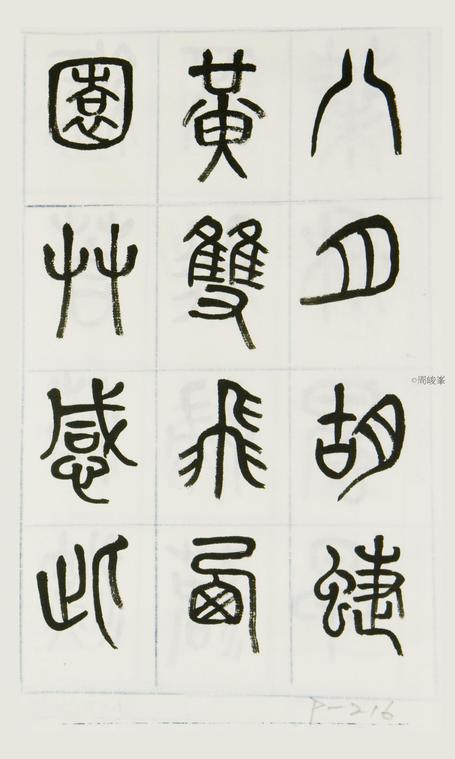 八月胡蜨
黃雙飛西
園艸感此
©周峻峯
P-216